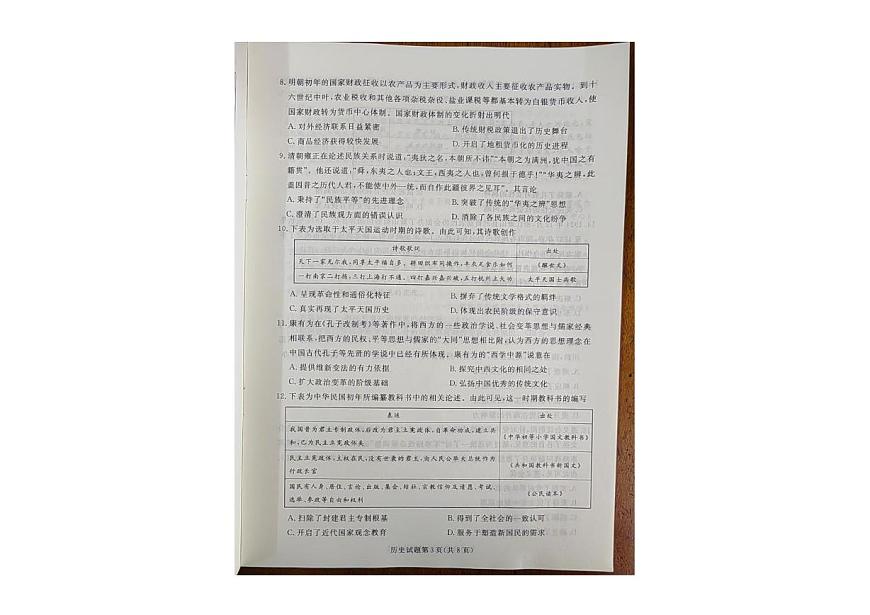 8. 明朝初年的国家财政征收以农产品为主要形式,财政收入主要征收农产品实物。到十
六世纪中叶,农业税收和其他各项杂税杂役、盐业课税等都基本转为白银货币收入,使
国家财政转为货币中心体制。国家财政体制的变化折射出明代
A. 对外经济联系日益紧密 B. 传统财税政策退出了历史舞台
C. 商品经济获得较快发展 D. 开启了地租货币化的历史进程
9. 清朝雍正在论述民族关系时说道,“夷狄之名,本朝所不讳”“本朝之为满洲,犹中国之有
籍贯”。他还说道:“舜,东夷之人也;文王,西夷之人也,曾何损于德乎!”“华夷之辨,此
盖因昔之历代人君,不能使中外一统,而自作此疆彼界之见耳”。其言论
A. 秉持了“民族平等”的先进理念 B. 突破了传统的“华夷之辨”思想
C. 澄清了民族观方面的错误认识 D. 消除了各民族之间的文化纷争
10. 下表为选取于太平天国运动时期的诗歌。由此可知,其诗歌创作
诗歌歌词 出处
天下一家无尔我,同享太平福自多。耕田织布同操作,丰衣足食乐如何 《醒世文》
一打南京二打扬,三打上海打不通。四打嘉兴嘉兴破,五打杭州上大功 太平天国士兵歌
A. 呈现革命性和通俗化特征 B. 摒弃了传统文学格式的羁绊
C. 真实再现了太平天国历史 D. 体现出农民阶级的保守意识
11. 康有为在《孔子改制考》等著作中,将西方的一些政治学说、社会变革思想与儒家经典
相联系,把西方的民权、平等思想与儒家的“大同”思想相比附,认为西方的思想理念在
中国古代孔子等先贤的学说中已经有所体现。康有为的“西学中源”说意在
A. 提供维新变法的有力依据 B. 探究中西文化的相同之处
C. 扩大政治变革的阶级基础 D. 弘扬中国优秀的传统文化
12. 下表为中华民国初年所编纂教科书中的相关论述。由此可见,这一时期教科书的编写
表述 出处
我国昔为君主专制政体,后改为君主立宪政体,自革命功成,建立共
和,已为民主立宪政体矣 《中华初等小学国文教科书》
民主立宪政体,主权在民,没有世袭的君主,由人民公举大总统作为
行政长官 《共和国教科书新国文》
国民有人身、居住、言论、出版、集会、结社、宗教信仰及请愿、考试、
选举、参政等自由和权利 《公民读本》
A. 扫除了封建君主专制根基 B. 得到了全社会的一致认可
C. 开启了近代国家观念教育 D. 服务于塑造新国民的需求
历史试题第3页(共8页)